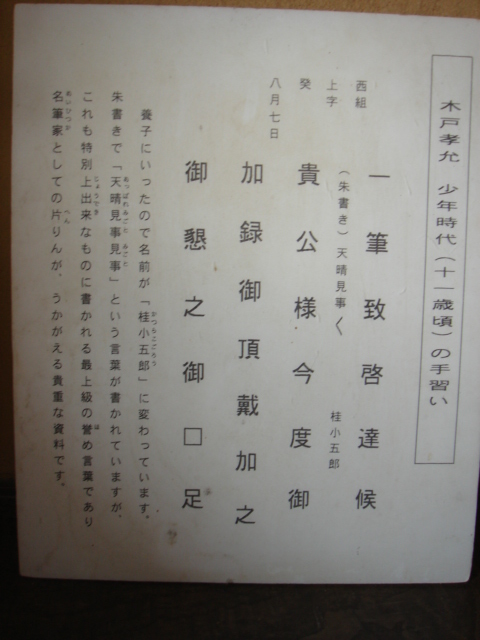 木戸孝允 少年時代（十一歳頃）の手習い
一筆致啓達候
西組
上字 （朱書き）天晴見事〱 桂小五郎
癸 貴公様今度御
八月七日
加録御頂戴加之
御懇之御□足
養子にいったので名前が「桂小五郎」に変わっています。
朱書きで「天晴見事見事」という言葉が書かれていますが、
これも特別上出来なものに書かれる最上級の誉め言葉であり
名筆家としての片りんが、うかがえる貴重な資料です。